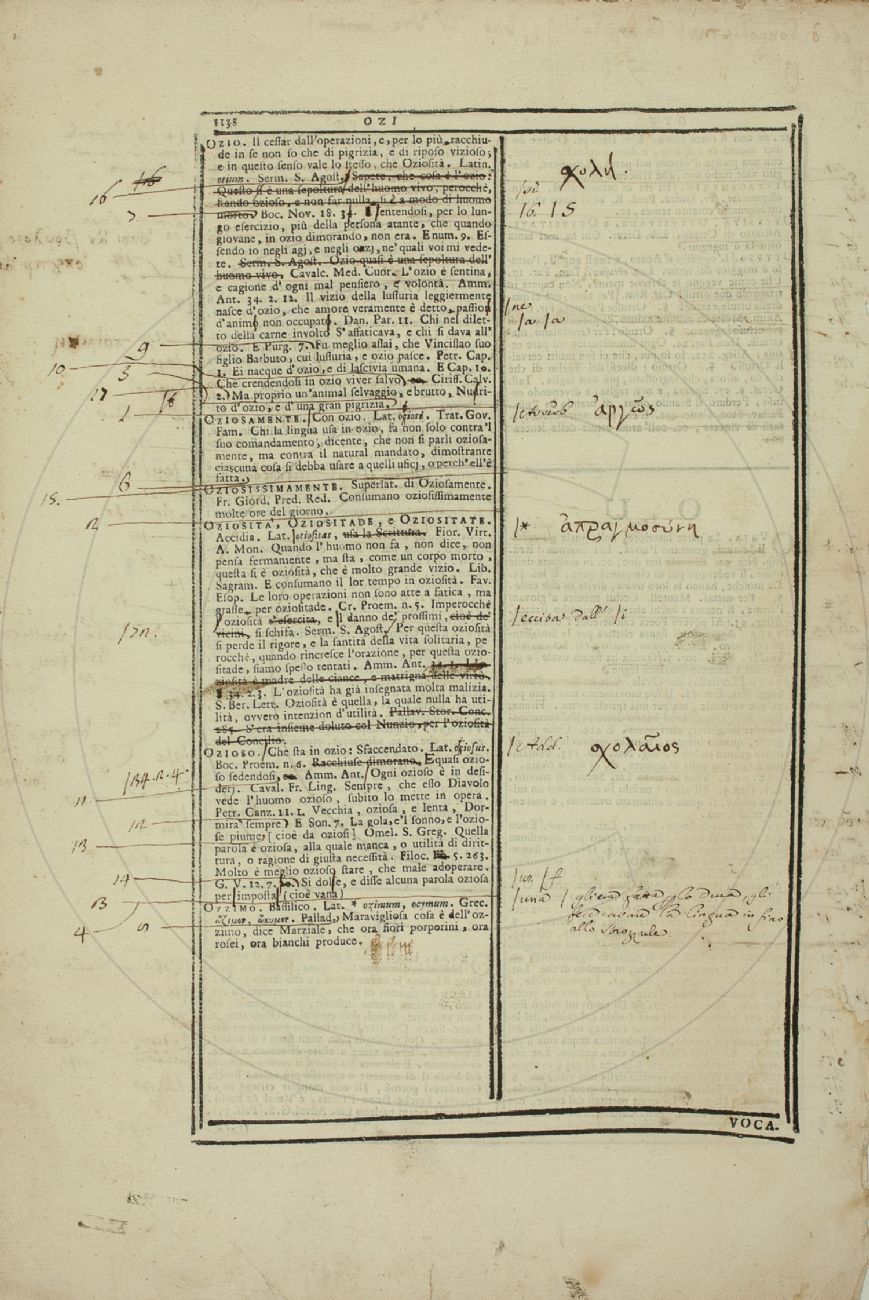 1138 OZI
OZIO. Il cessar dall'operazioni, e, per lo più, racchiu-
de in se non so che di pigrizia, e di riposo vizioso;
e in questo senso vale lo stesso, che Oziosità. Latin.
otium. Serm. S. Agost. Sapete, che cosa è l'ozio?
Questo si è una sepoltura dell'huomo vivo, perocchè,
stando ozioso, e non far nulla, si è a modo di huomo
morto. Boc. Nov. 18. 34. S'entendosi, per lo lun-
go esercizio, più della persona atante, che quando
giovane, in ozio dimorando, non era. E num. 9. Es-
sendo io negli agj, e negli ozj, ne' quali voi mi vede-
te. Serm. S. Agost. Ozio quasi è una sepoltura dell'
huomo vivo. Cavalc. Med. Cuor. L'ozio è sentina,
e cagione d'ogni mal pensiero, e volontà. Amm.
Ant. 34. 2. 12. Il vizio della lussuria leggiermente
nasce d'ozio, che amore veramente è detto passion
d'animo non occupato. Dan. Par. 11. Chi nel dilet-
to della carne involto S'affaticava, e chi si dava all'
ozio. E Purg. 7. Fu meglio assai, che Vincislao suo
figlio Barbuto, cui lussuria, e ozio pasce. Petr. Cap.
1. Ei nacque d'ozio, e di lascivia umana. E Cap. 10.
Che crendendosi in ozio viver salvo, ec. Ciriff. Calv.
2. Ma proprio un'animal selvaggio, e brutto, Nutri-
to d'ozio, e d'una gran pigrizia.
OZIOSAMENTE. Con ozio. Lat. otiosè. Trat. Gov.
Fam. Chi la lingua usa in ozio, fa non solo contra'l
suo comandamento, dicente, che non si parli oziosa-
mente, ma contra il natural mandato, dimostrante
ciascuna cosa si debba usare a quelli uficj, o perch'ell'è
fatta.
OZIOSISSIMAMENTE. Superlat. di Oziosamente.
Fr. Giord. Pred. Red. Consumano oziosissimamente
molte ore del giorno.
OZIOSITÀ, OZIOSITADE, e OZIOSITATE.
Accidia. Lat. otiositas, usa la Scrittura. Fior. Virt.
A. Mon. Quando l'huomo non fa, non dice, non
pensa fermamente, ma sta, come un corpo morto,
questa si è oziosità, che è molto grande vizio. Lib.
Sagram. E consumano il lor tempo in oziosità. Fav.
Esop. Le loro operazioni non sono atte a fatica, ma
grasse per oziositade. Cr. Proem. n. 5. Imperocchè
l'oziosità s'esercita, e il danno de' prossimi, cioè de'
vicini, si schifa. Serm. S. Agost. Per questa oziosità
si perde il rigore, e la santità della vita solitaria, pe-
rocchè, quando rincresce l'orazione, per questa ozio-
sitade, siamo spesso tentati. Amm. Ant.
ziosità è madre delle ciance, e matrigna delle virtù.
34. 2. 3. L'oziosità ha già insegnata molta malizia.
S. Ber. Lett. Oziosità è quella, la quale nulla ha uti-
lità, ovvero intenzion d'utilità. Pallav. Stor. Conc.
285. S'era insieme doluto col Nunzio, per l'oziosità
del Concilio.
OZIOSO. Che sta in ozio: Sfaccendato. Lat. otiosus.
Boc. Proem. n. 6. Racchiuse dimorano, E quasi ozio-
so sedendosi, ec. Amm. Ant. Ogni ozioso è in desi-
derj. Caval. Fr. Ling. Sempre, che esso Diavolo
vede l'huomo ozioso, subito lo mette in opera.
Petr. Canz. 11. 1. Vecchia, oziosa, e lenta, Dor-
mirà sempre? E Son. 7. La gola, e'l sonno, e l'ozio-
se piume, [cioè da oziosi] Omel. S. Greg. Quella
parola è oziosa, alla quale manca, o utilità di dirit-
tura, o ragione di giusta necessità. Filoc. 5. 263.
Molto è meglio ozioso stare, che male adoperare.
G. V. 12. 7. Si dolse, e disse alcuna parola oziosa
per imposta (cioè vana)
OZZIMO. Bassilico. Lat. * ozimum, ocymum. Grec.
ὤζιμον, ὤκυμον. Pallad. Maravigliosa cosa è dell'oz-
zimo, dice Marziale, che ora fiori porporini, ora
rosei, ora bianchi produce.
16
7
9
10
5
17 18
1
6
15.
2
/34.2.4.
11
12
13
14
4 5
χολή.
16. 15
/ne
/a /a
ἀργῶς
/* ἀπραγμοσύνη
dall' /i
/Add. σχολαῖος
/una
VOCA.